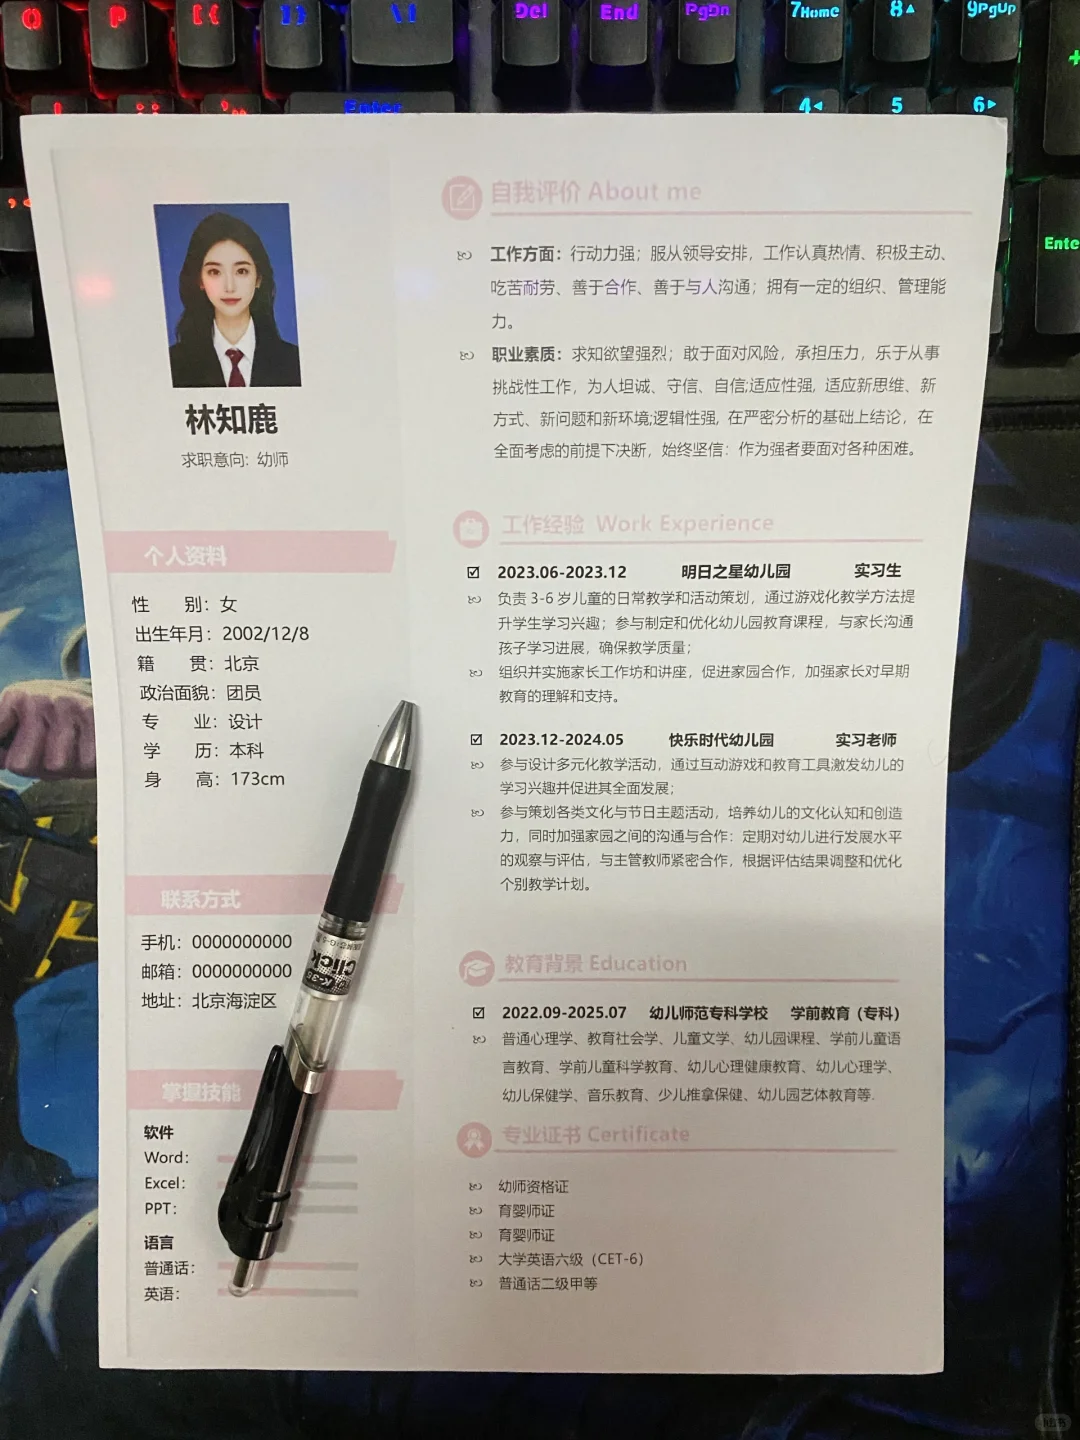 O
P
Del
End
PgDn
7Home
8▲
9PgUp
+
Enter
4◄
5
6►
Ente
林知鹿
求职意向: 幼师
个人资料
性 别：女
出生年月：2002/12/8
籍 贯：北京
政治面貌：团员
专 业：设计
学 历：本科
身 高：173cm
联系方式
手机：0000000000
邮箱：0000000000
地址：北京海淀区
掌握技能
软件
Word：
Excel：
PPT：
语言
普通话：
英语：
自我评价 About me
工作方面：行动力强；服从领导安排，工作认真热情、积极主动、
吃苦耐劳、善于合作、善于与人沟通；拥有一定的组织、管理能
力。
职业素质：求知欲望强烈；敢于面对风险，承担压力，乐于从事
挑战性工作，为人坦诚、守信、自信;适应性强, 适应新思维、新
方式、新问题和新环境;逻辑性强, 在严密分析的基础上结论，在
全面考虑的前提下决断，始终坚信：作为强者要面对各种困难。
工作经验 Work Experience
☑ 2023.06-2023.12 明日之星幼儿园 实习生
负责 3-6 岁儿童的日常教学和活动策划，通过游戏化教学方法提
升学生学习兴趣；参与制定和优化幼儿园教育课程，与家长沟通
孩子学习进展，确保教学质量；
组织并实施家长工作坊和讲座，促进家园合作，加强家长对早期
教育的理解和支持。
☑ 2023.12-2024.05 快乐时代幼儿园 实习老师
参与设计多元化教学活动，通过互动游戏和教育工具激发幼儿的
学习兴趣并促进其全面发展；
参与策划各类文化与节日主题活动，培养幼儿的文化认知和创造
力，同时加强家园之间的沟通与合作：定期对幼儿进行发展水平
的观察与评估，与主管教师紧密合作，根据评估结果调整和优化
个别教学计划。
教育背景 Education
☑ 2022.09-2025.07 幼儿师范专科学校 学前教育（专科）
普通心理学、教育社会学、儿童文学、幼儿园课程、学前儿童语
言教育、学前儿童科学教育、幼儿心理健康教育、幼儿心理学、
幼儿保健学、音乐教育、少儿推拿保健、幼儿园艺体教育等.
专业证书 Certificate
幼师资格证
育婴师证
育婴师证
大学英语六级（CET-6）
普通话二级甲等
Click